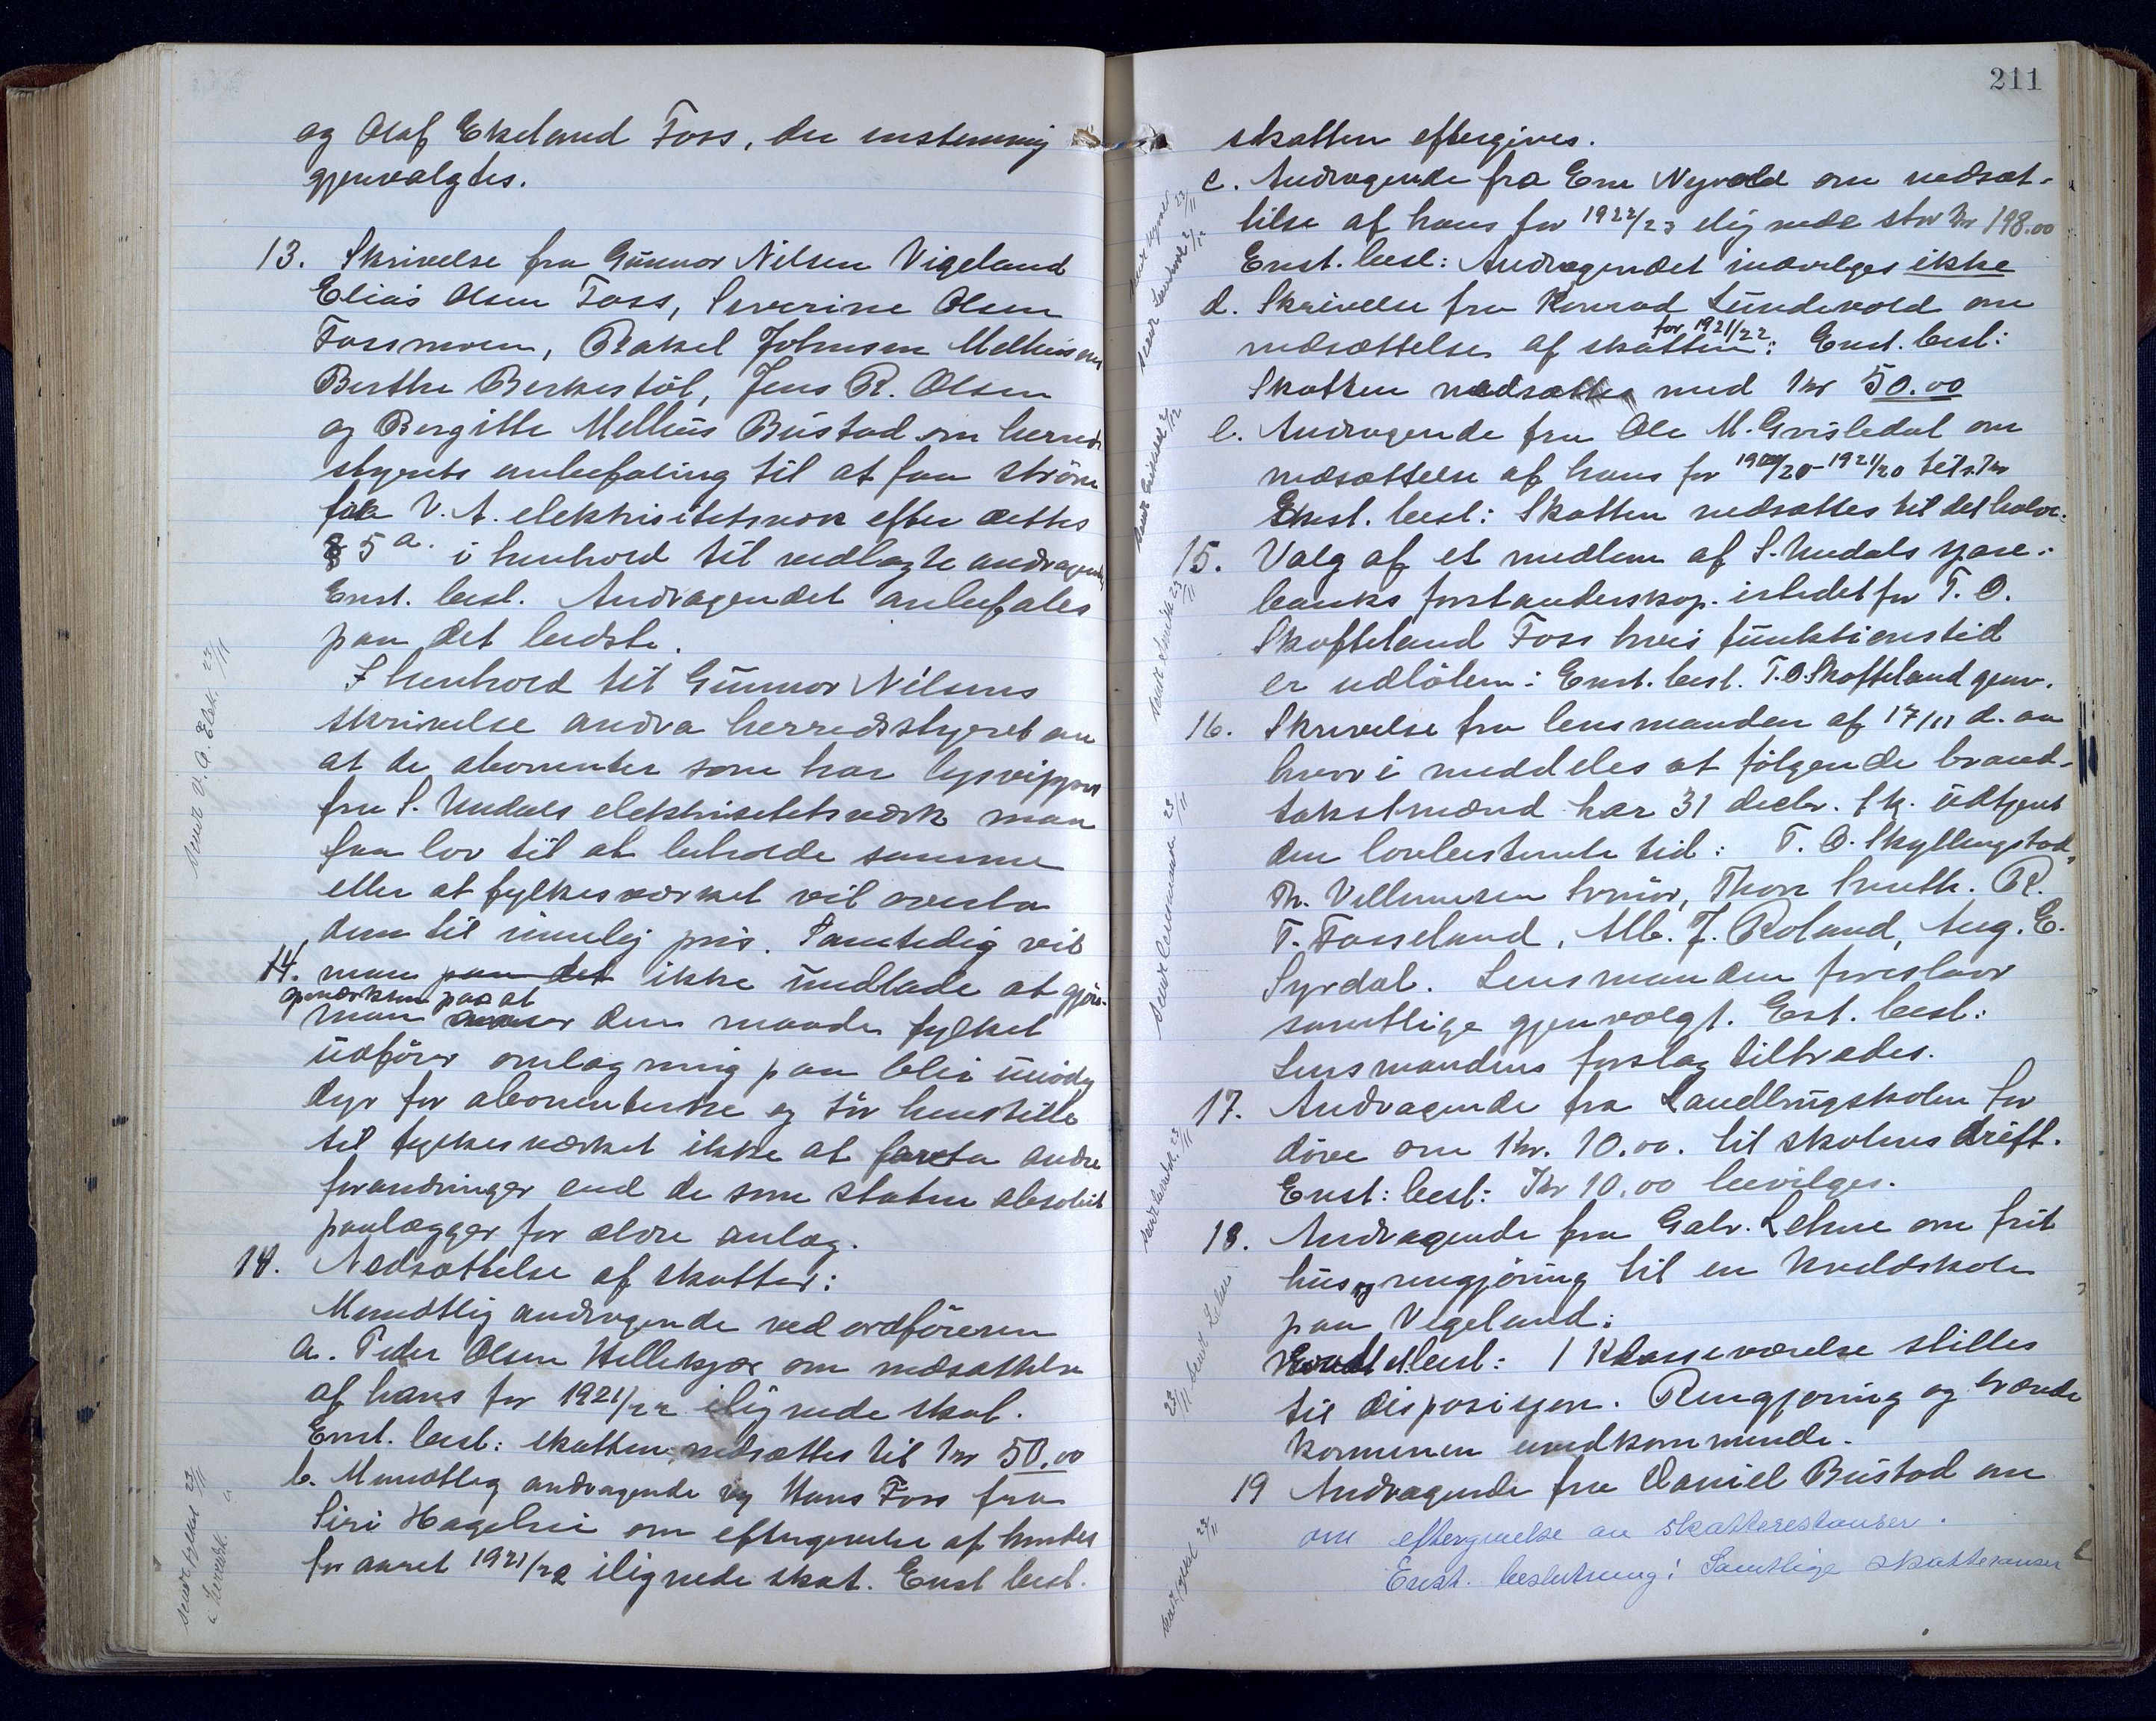 og Olaf Ekeland Foss, der enstemmig
gjenvalgtes.
13. Skrivelse fra Gunvor Nilsen Vigeland
Elias Olsen Foss, Severine Olsen
Fossmoen, Rakel Johnsen Melhusmo
Berthe Berkestöl, Jens R. Olsen
og Bergitte Melhus Bustad om herreds
styrets anbefaling til at faa ström
fra V. A. elektrisitetsverk efter dettes
§ 5 a. i henhold til vedlagte andragende
Enst. besl. Andragendet anbefales
paa det bedste.
I henhold til Gunvor Nilsens
skrivelse andra herredsstyret om
at de abonenter som har lysvippor
fra S. Undals elektrisitetsværk maa
faa lov til at beholde samme
eller at fylkesværket vil overta
dem til rimelig pris. Samtidig vil
14. man paa det ikke undlade at gjöre
opmerksom paa at
man anser den maade fylket
utförer omlægning paa blir unödig
dyr for abonenterne og tör henstille
til fylkesværket ikke at foreta andre
forandringer end de som staten absolut
paalægger for ældre anlæg.
14. Nedsættelse af skatter:
Mundtlig andragende ved ordföreren
a. Peder Olsen Hellekjær om nedsættelse
af hans for 1921/22 ilignede skat.
Enst. besl: skatten nedsættes til kr 50.00
b. Mundtlig andragende og Hans Foss fra
Siri Hagelsei om eftergivelse af hendes
for aaret 1921/22 ilignede skat. Enst besl.
sendt V. A. Elek. 23/11
sendt fylket 23/11
211
skatten eftergives.
c. Andragende fra Em Nyvold om nedsæt-
telse af hans for 1922/23 ilignede skat kr 198.00
Enst. besl: Andragendet indvilges ikke
d. Skrivelse fra Konrad Lundevold om
for 1921/22
nedsættelse af skatten: Enst. besl:
Skatten nedsættes med kr 50.00
e. Andragende fra Ole M. Grisledal om
nedsættelse af hans for
Enst. besl: Skatten nedsættes til det halve.
15. Valg af et medlem af S. Undals spare-
banks forstanderskap istedetfor T. O.
Skofteland Foss hvis funktionstid
er udlöben: Enst. besl. T. O. Skofteland gjenv.
16. Skrivelse fra lensmanden af 17/11 d. aa
hvori meddeles at fölgende brand-
takstmænd har 31 decbr. f.k. udtjent
den lovbestemte tid: T. O. Skyllingstad,
Th. Villumsen Svinör, Thor Smith. R.
T. Fosseland, Alb. J. Roland, Aug. E.
Syrdal. Lensmanden foreslaar
samtlige gjenvalgt. Est. besl:
Lensmandens forslag tiltrædes.
17. Andragende fra Landbrugskolen for
döve om Kr. 10.00. til skolens drift.
Enst: besl: Kr 10.00 bevilges.
18. Andragende fra Galv. Lehne om frit
hus og rengjöring til en kveldskole
paa Vigeland:
Enst. besl: 1 klasseværelse stilles
til disposisjon. Rengjöring og brænde
kommunen uvedkommende.
19 Andragende fra Daniel Bustad om
om eftergivelse av skatterestanser.
Enst. beslutning: Samtlige skatteranser
sendt 23/11
sendt Lundevold 2/12
sendt Grisledal 2/12
sendt Smith 23/11
sendt lensmanden 23/11
sendt 23/11
23/11 sendt Lehne
sendt fylket 23/11